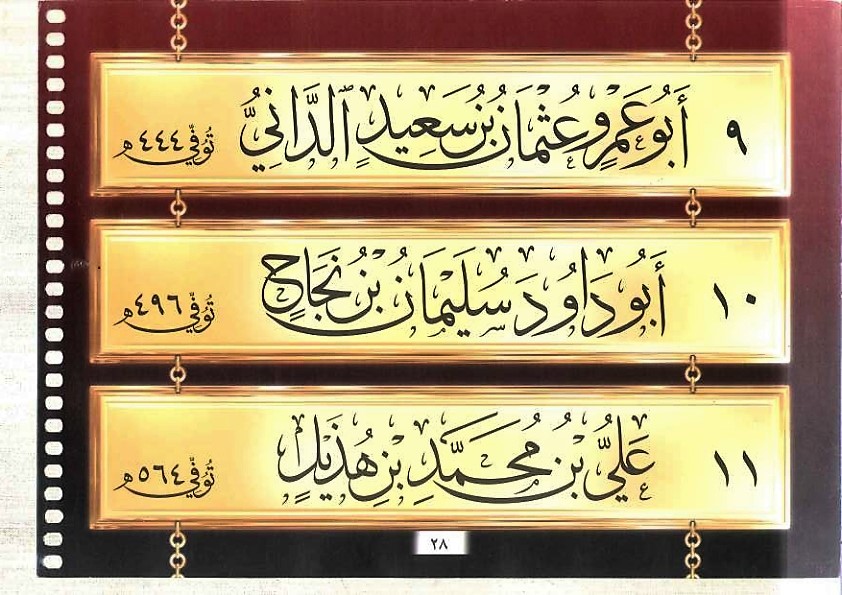 ٩ أَبُو عَمْرٍو عُثْمَانُ بْنُ سَعِيدٍ ٱلدَّانِيُّ تُوُفِّيَ ٤٤٤ هـ
١٠ أَبُو دَاوُدَ سُلَيْمَانُ بْنُ نَجَاحٍ تُوُفِّيَ ٤٩٦ هـ
١١ عَلِيُّ بْنُ مُحَمَّدِ بْنِ هُذَيْلٍ تُوُفِّيَ ٥٦٤ هـ
٢٨